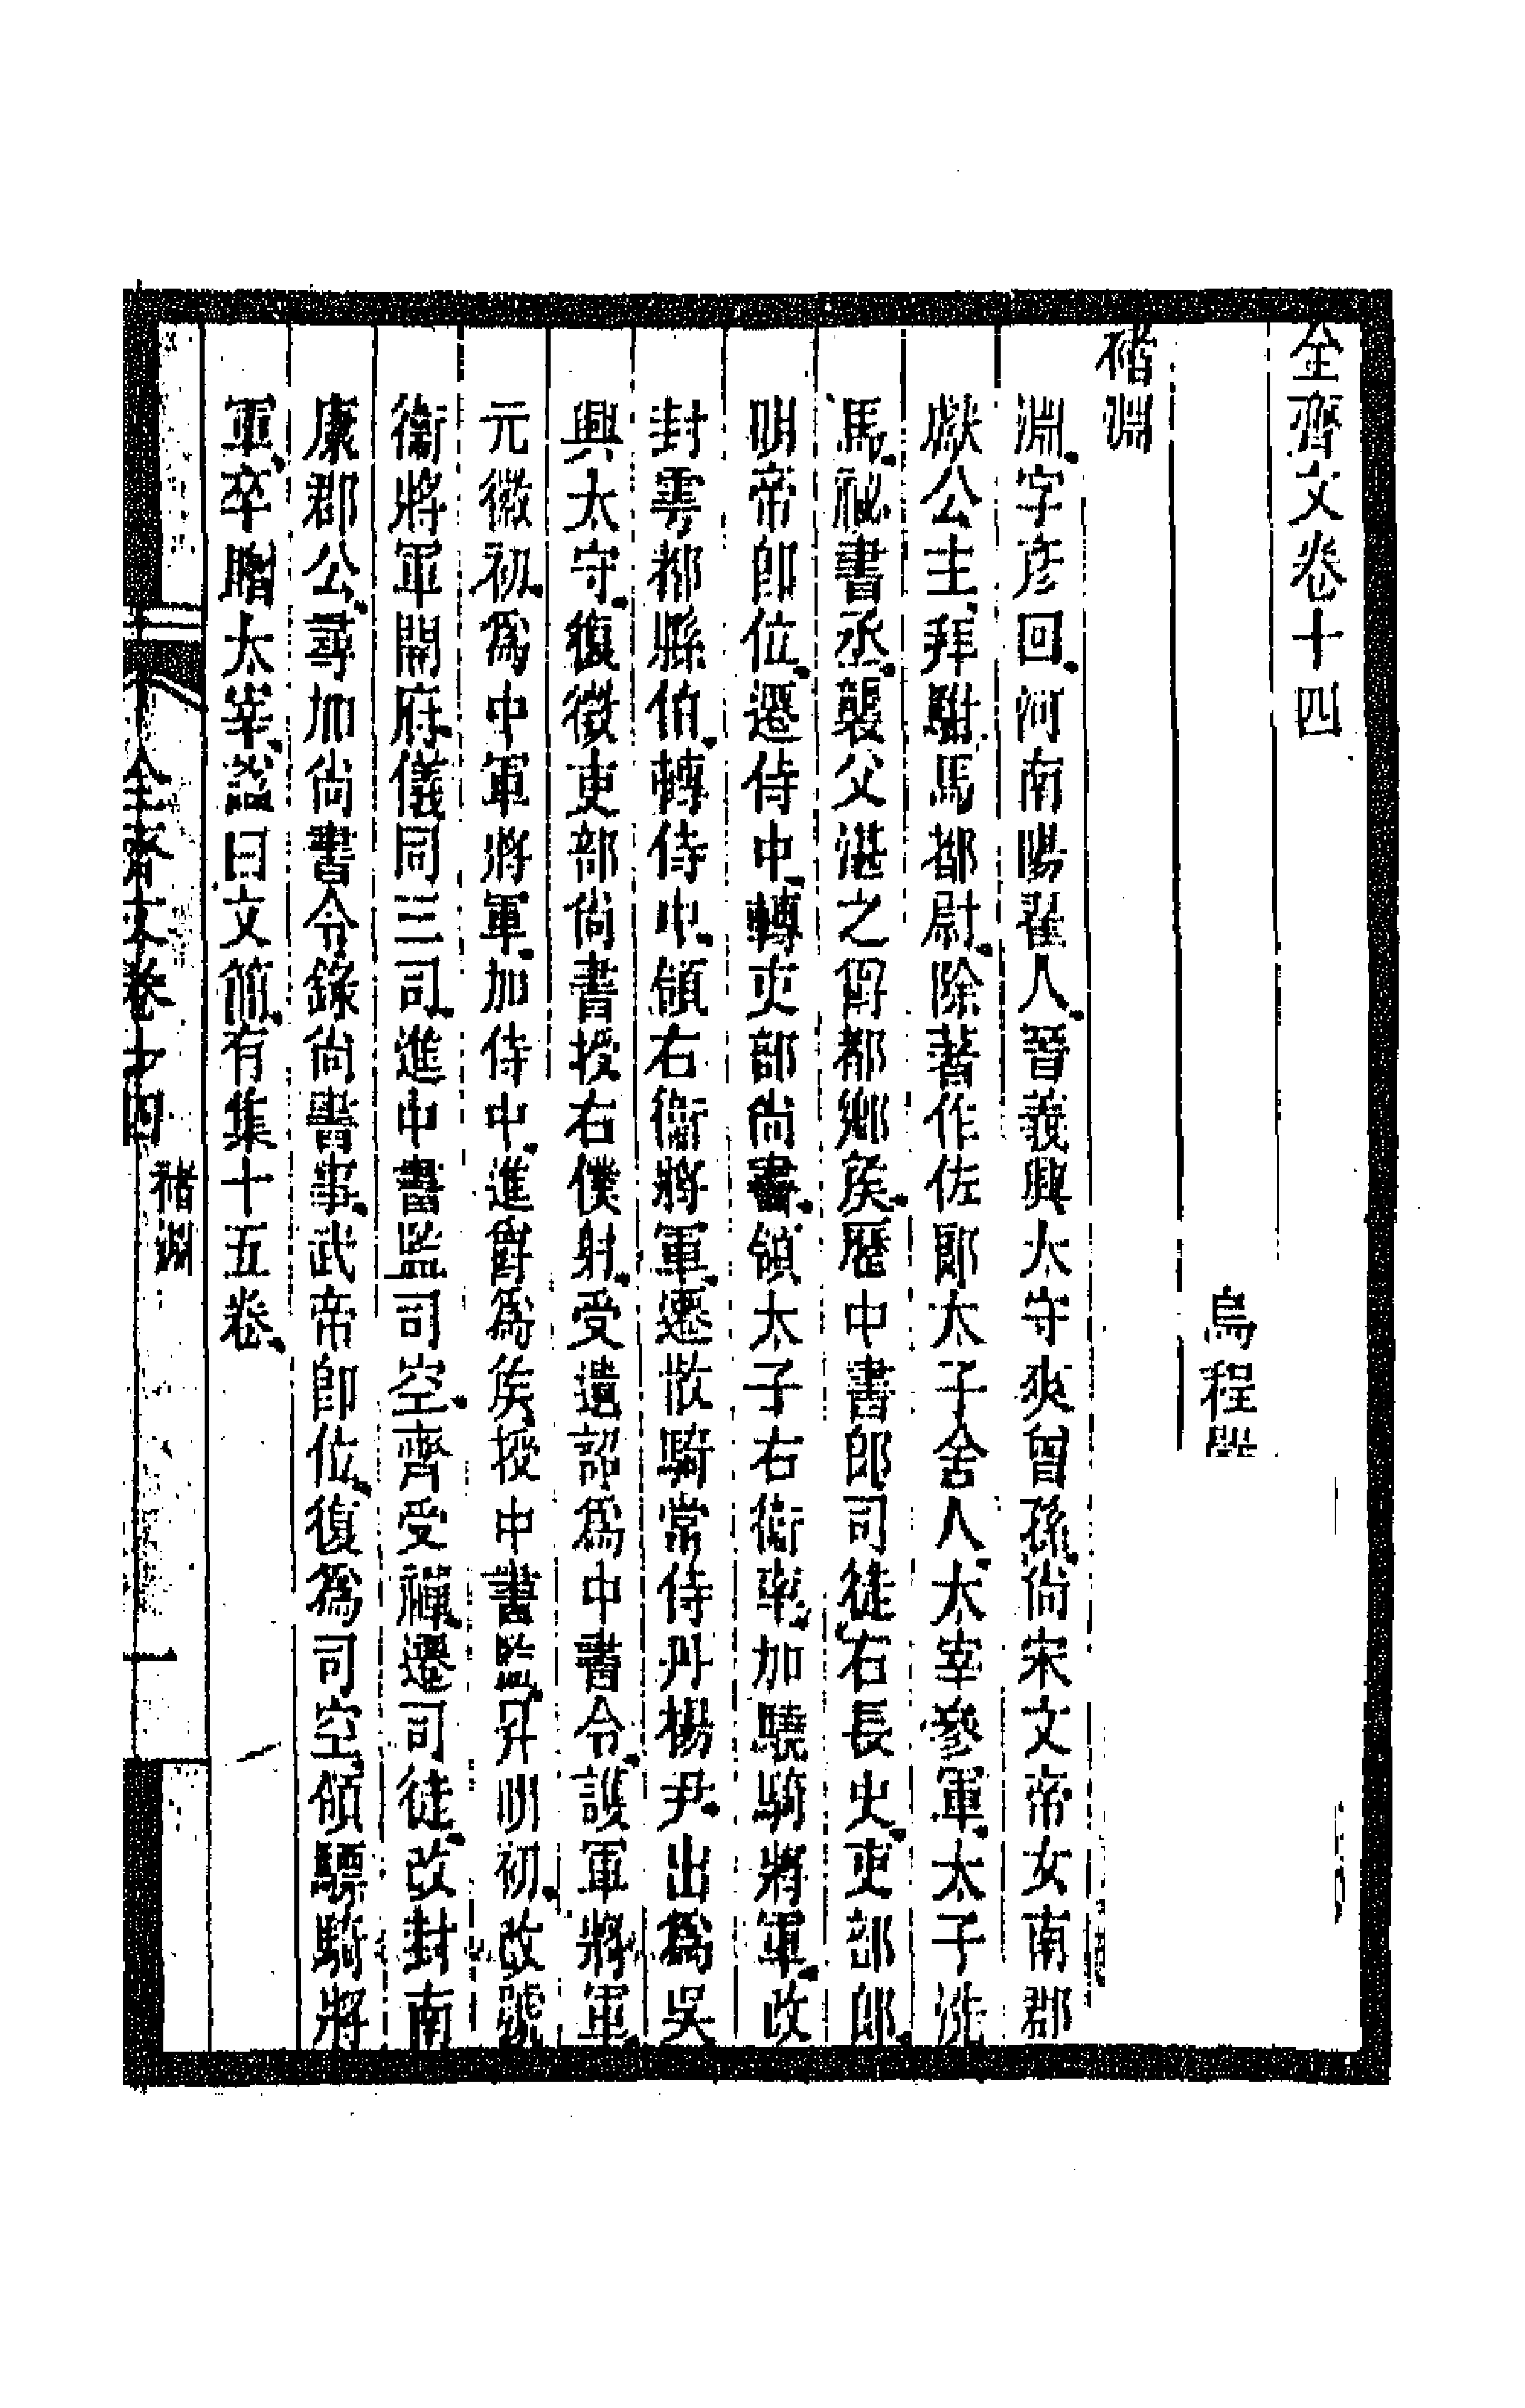 全齊文卷十四
烏程嚴
褚淵
淵字彥回河南陽翟人晉義興太守爽曾孫尚宋文帝女南郡
獻公主拜駙馬都尉除著作佐郎太子舍人太宰參軍太子洗
馬祕書丞襲父湛之爵都鄉侯歷中書郎司徒右長史吏部郎
明帝卽位遷侍中轉吏部尚書領太子右衞率加驍騎將軍改
封雩都縣伯轉侍中領右衞將軍遷散騎常侍丹楊尹出爲吳
興太守復徵吏部尚書授右僕射受遺詔爲中書令護軍將軍
元徽初爲中軍將軍加侍中進爵爲侯授中書監昇明初改號
衞將軍開府儀同三司進中書監司空齊受禪遷司徒改封南
康郡公尋加尚書令錄尚書事武帝卽位復爲司空領驃騎將
軍卒贈太宰諡曰文簡有集十五卷
全齊文卷十四 褚淵 一